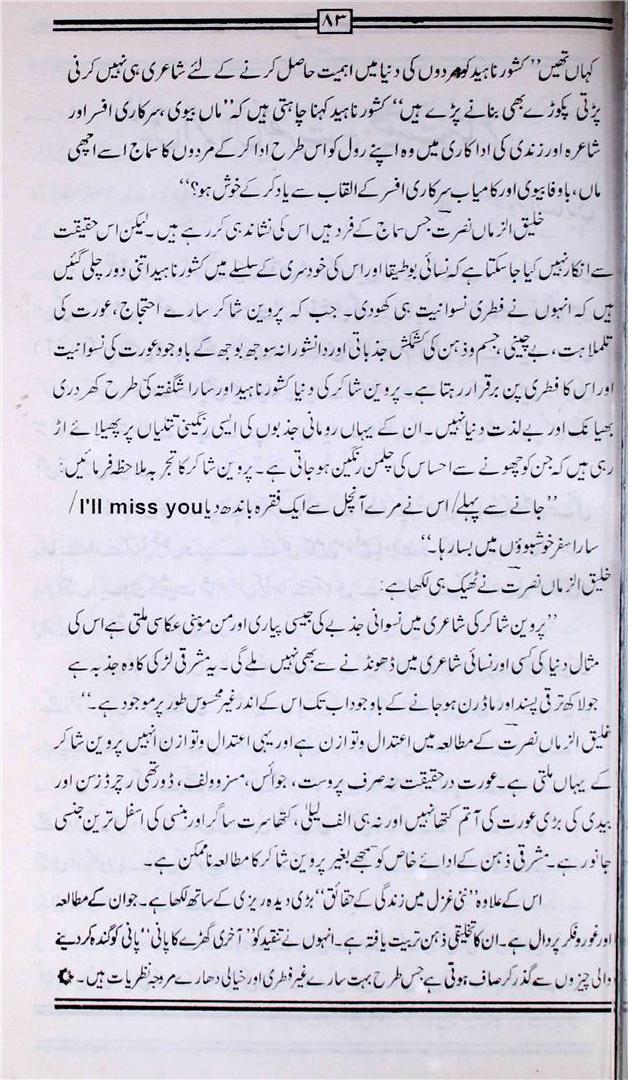 ۸۳
کہاں تھیں’’ کشور ناہید کو مردوں کی دنیا میں اہمیت حاصل کرنے کے لئے شاعری ہی نہیں کرنی
پڑتی پکوڑے بھی بنانے پڑے ہیں‘‘ کشور ناہید کہنا چاہتی ہیں کہ’’ ماں بیوی، سرکاری افسر اور
شاعرہ اور زندگی کی اداکاری میں وہ اپنے رول کو اس طرح ادا کرکے مردوں کا سماج اسے اچھی
ماں، باوفا بیوی اور کامیاب سرکاری افسر کے القاب سے یاد کرکے خوش ہو؟‘‘
خلیق الزماں نصرت جس سماج کے فرد ہیں اس کی نشاندہی کر رہے ہیں۔ لیکن اس حقیقت
سے انکار نہیں کیا جا سکتا ہے کہ نسائی بوطیقا اور اس کی خودسری کے سلسلے میں کشور ناہید اتنی دور چلی گئیں
ہیں کہ انہوں نے فطری نسوانیت ہی کھودی۔ جب کہ پروین شاکر سارے احتجاج، عورت کی
تلملاہت، بے چینی، جسم و ذہن کی کشمکش جذباتی اور دانشورانہ سوجھ بوجھ کے باوجود عورت کی نسوانیت
اور اس کا فطری پن برقرار رہتا ہے۔ پروین شاکر کی دنیا کشور ناہید اور سارا شگفتہ کی طرح کھردری
بھیانک اور بے لذت دنیا نہیں۔ ان کے یہاں رومانی جذبوں کی ایسی رنگینی تتلیاں پر پھیلائے اڑ
رہی ہیں کہ جن کو چھونے سے احساس کی چلمن رنگین ہو جاتی ہے۔ پروین شاکر کا تجربہ ملاحظہ فرمائیں:
’’جانے سے پہلے/ اس نے مرے آنچل سے ایک فقرہ باندھ دیا I'll miss you/
سارا سفر خوشبوؤں میں بسا رہا۔‘‘
خلیق الزماں نصرت نے ٹھیک ہی لکھا ہے:
’’پروین شاکر کی شاعری میں نسوانی جذبے کی جیسی پیاری اور من موہنی عکاسی ملتی ہے اس کی
مثال دنیا کی کسی اور نسائی شاعری میں ڈھونڈنے سے بھی نہیں ملے گی۔ یہ مشرقی لڑکی کا وہ جذبہ ہے
جو لاکھ ترقی پسند اور ماڈرن ہو جانے کے باوجود اب تک اس کے اندر غیر محسوس طور پر موجود ہے۔‘‘
خلیق الزماں نصرت کے مطالعہ میں اعتدال و توازن ہے اور یہی اعتدال و توازن انہیں پروین شاکر
کے یہاں ملتی ہے۔ عورت درحقیقت نہ صرف پروست، جوائس، مسز وولف، ڈورتھی رچرڈزسن اور
بیدی کی بڑی عورت کی آتم کتھا نہیں اور نہ ہی الف لیلیٰ، کتھا سرت ساگر اور بنسی کی اسفل ترین جنسی
جانور ہے۔ مشرقی ذہن کے ادائے خاص کو سمجھے بغیر پروین شاکر کا مطالعہ ناممکن ہے۔
اس کے علاوہ ’’نئی غزل میں زندگی کے حقائق‘‘ بڑی دیدہ ریزی کے ساتھ لکھا ہے۔ جو ان کے مطالعہ
اور غور و فکر پر دال ہے۔ ان کا تخلیقی ذہن تربیت یافتہ ہے۔ انہوں نے تنقید کو ’’آخری گھڑے کا پانی‘‘ پانی کو گندہ کردینے
والی چیزوں سے گذر کر صاف ہوتی ہے جس طرح بہت سارے غیر فطری اور خیالی دھارے مروجہ نظریات ہیں۔